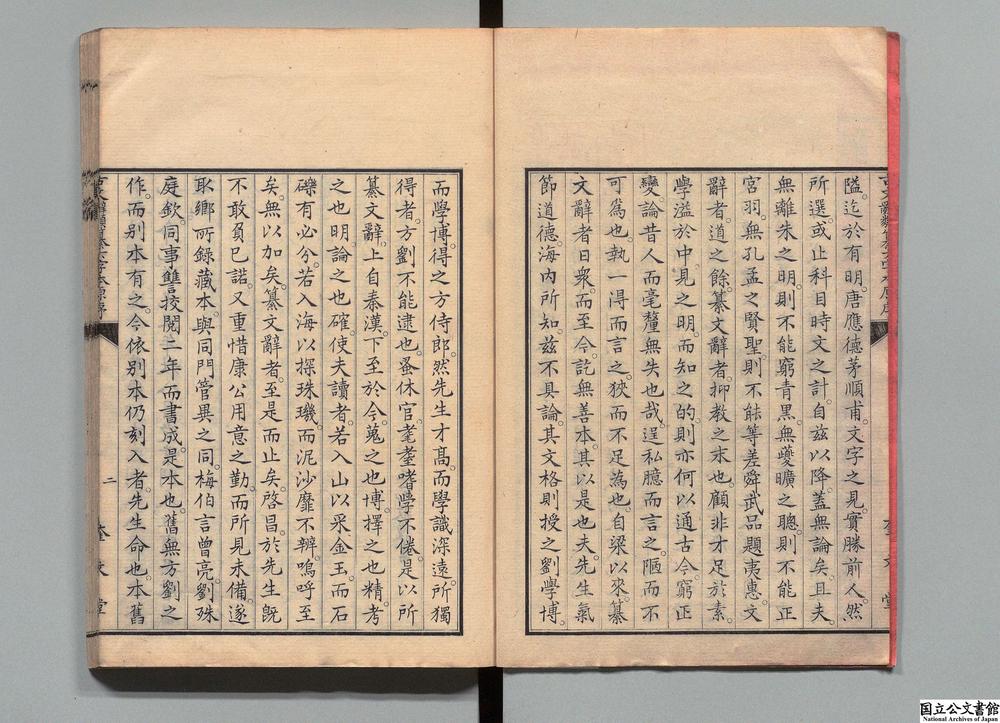 隘。迄於有明。唐應德茅順甫。文字之見。實勝前人。然
所選。或止科目時文之計。自兹以降。蓋無論矣。且夫
無離朱之明。則不能窮青黑。無夔曠之聰。則不能正
宮羽。無孔孟之賢聖。則不能等差舜武。品題夷惠。文
辭者。道之餘。纂文辭者。抑教之末也。顧非才足於素。
學溢於中。見之明。而知之的。則亦何以通古今。窮正
變。論昔人而毫釐無失也哉。逞私臆而言之。陋而不
可爲也。執一得而言之。狹而不足爲也。自梁以來。纂
文辭者日衆。而至今訖無善本。其以是也夫。先生氣
節道德。海內所知。兹不具論。其文格則授之劉學博。
而學博。得之方侍郎。然先生才高而學識深遠。所獨
得者。方劉不能逮也。蚤休官。耄耋嗜學不倦。是以所
纂文辭。上自秦漢。下至於今。蒐之也博。擇之也精。考
之也明。論之也確。使夫讀者。若入山以采金玉。而石
礫有必分。若入海以探珠璣。而泥沙靡不辨。嗚呼至
矣。無以加矣。纂文辭者。至是而止矣。啓昌。於先生旣
不敢負已諾。又重惜康公用意之勤。而所見未備。遂
取鄉所錄藏本。與同門管異之同。梅伯言曾亮。劉殊
庭欽。同事讐挍。閱二年而書成。是本也。舊無方劉之
作。而别本有之。今依别本仍刻入者。先生命也。本舊
二
國立公文書館
National Archives of Japan